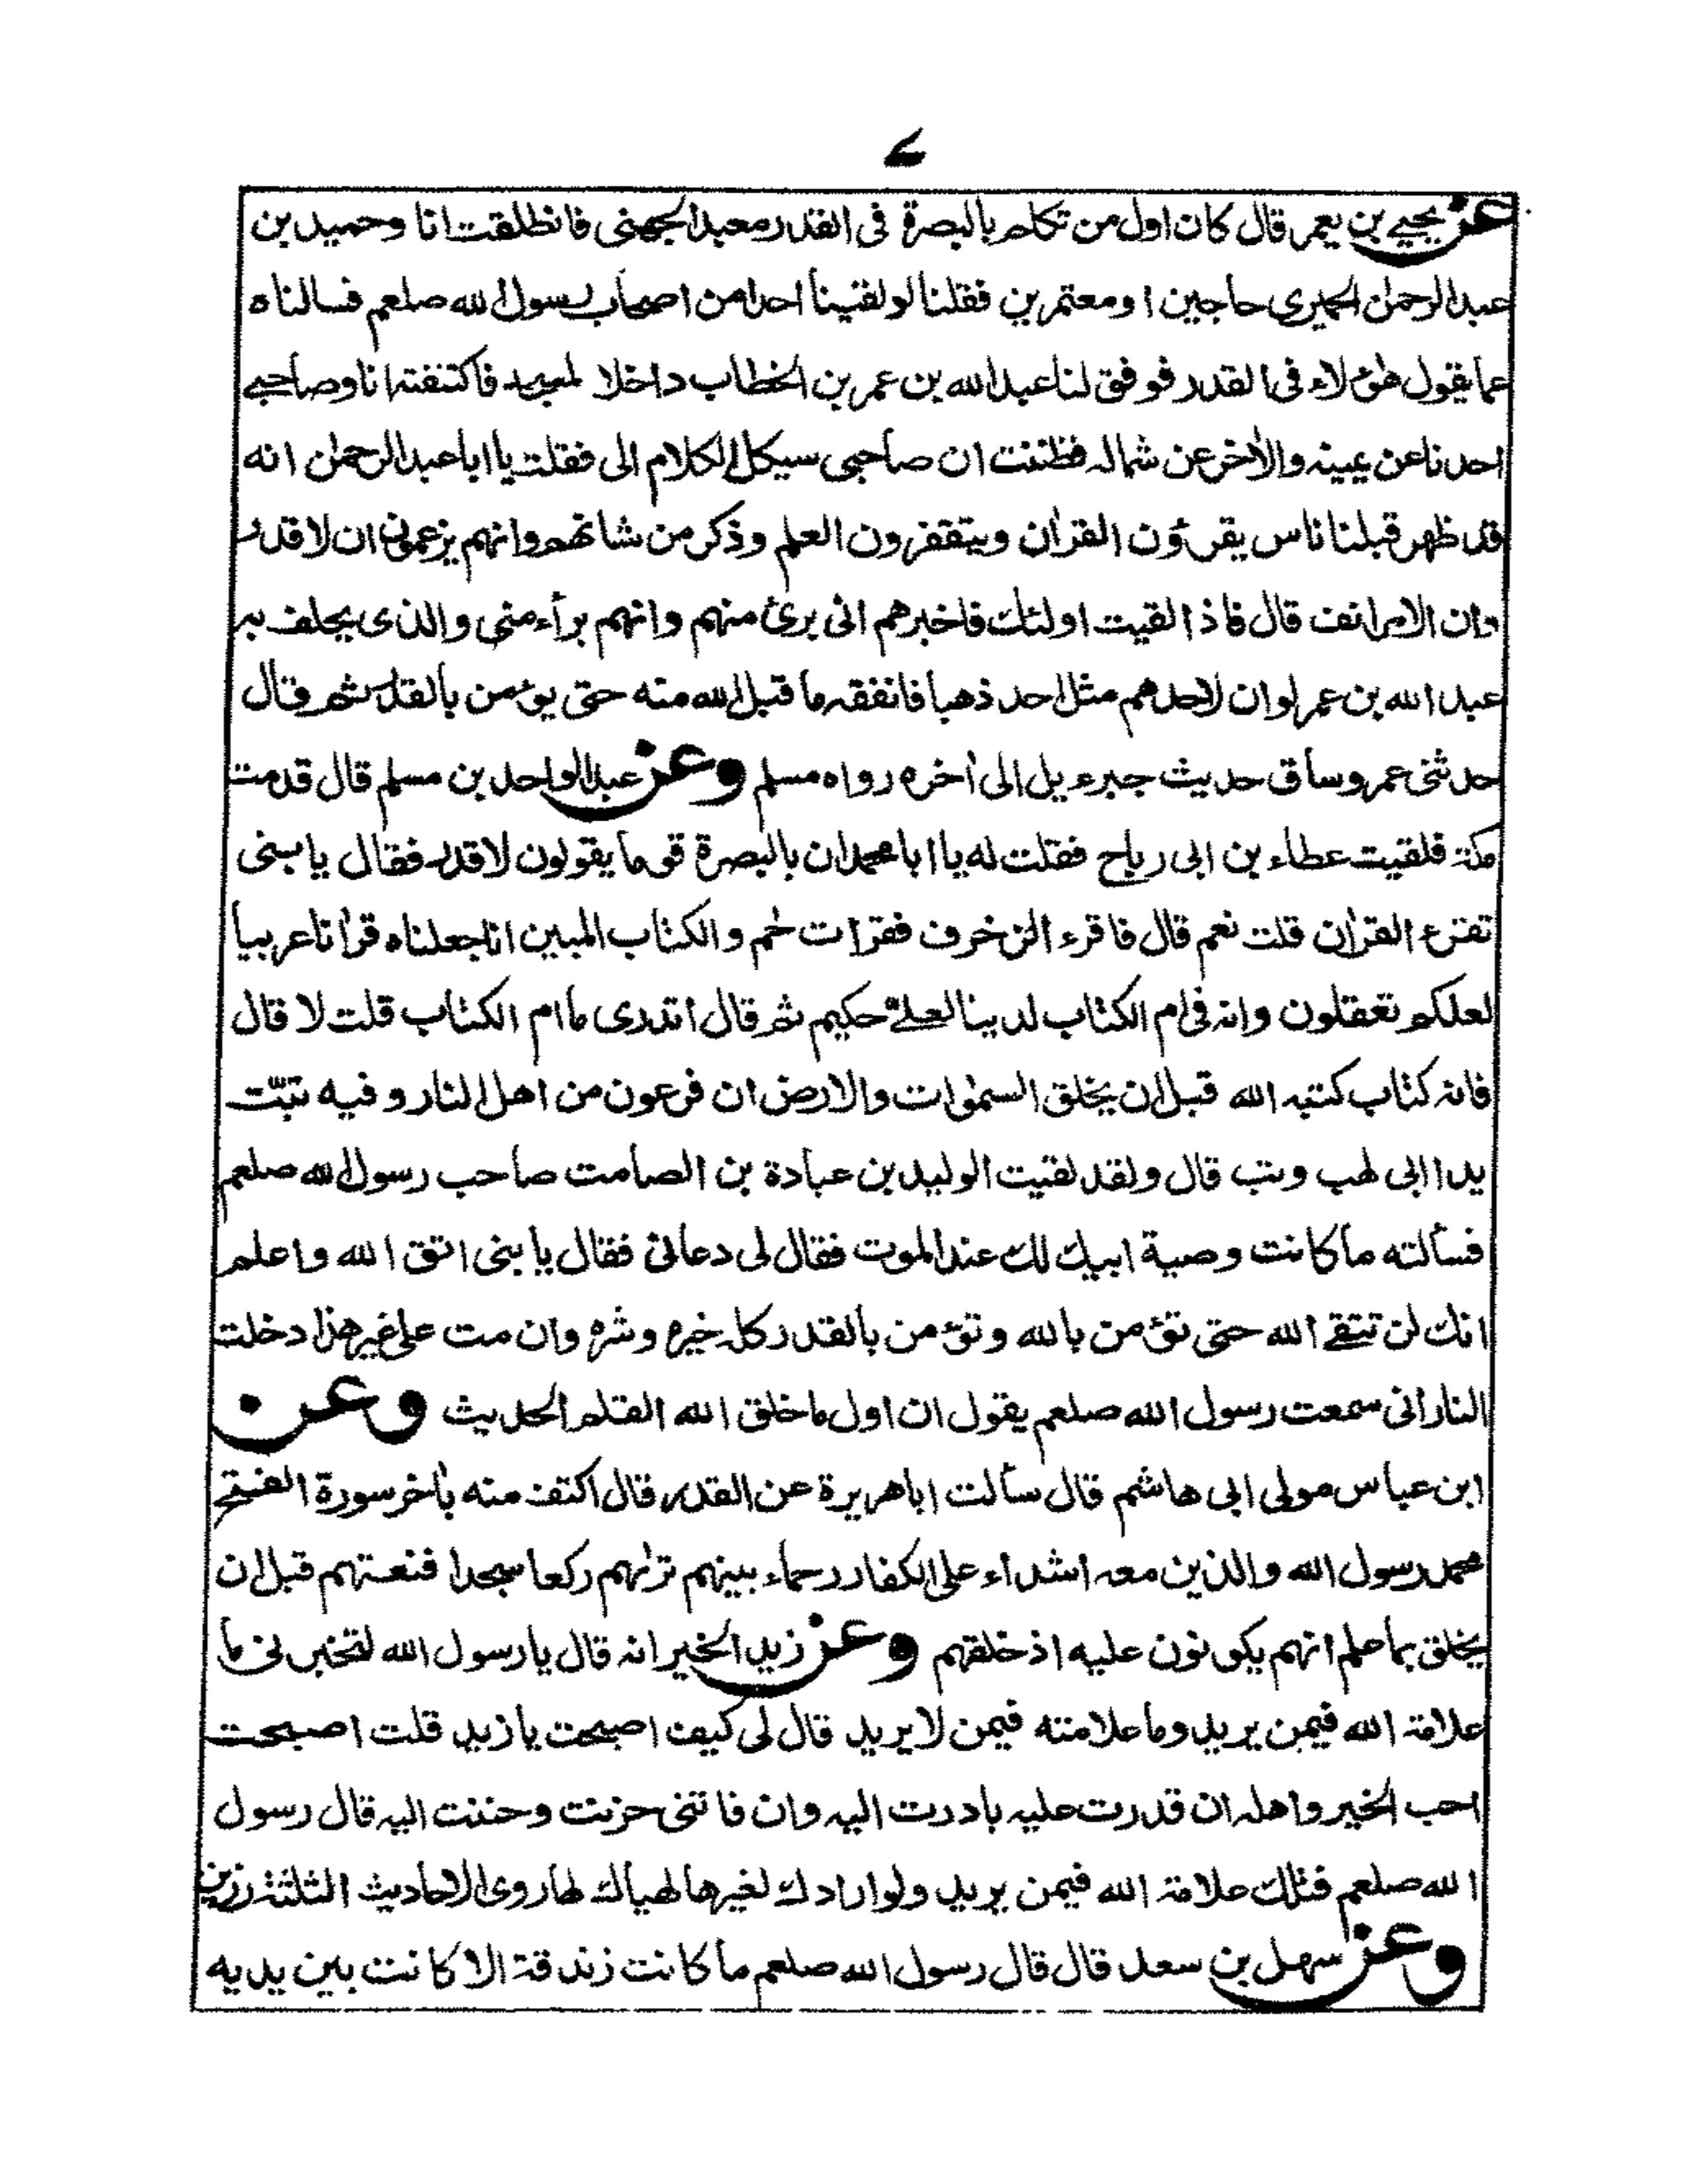 ۷
عن يحيى بن يعمر قال كان اول من تكلم بالبصرة فى القدر معبد الجهنى فانطلقت انا وحميد بن
عبد الرحمٰن الحميرى حاجين او معتمرين فقلنا لو لقينا احدا من اصحاب رسول الله صلعم فسالناه
عما يقول هٰؤلاء فى القدر فوفق لنا عبد الله بن عمر بن الخطاب داخلا المسجد فاكتنفته انا وصاحبى
احدنا عن يمينه والاٰخر عن شماله فظننت ان صاحبى سيكل الكلام الى فقلت يا ابا عبد الرحمٰن انه
قد ظهر قبلنا ناس يقرءون القراٰن ويتقفرون العلم وذكر من شانهم وانهم يزعمون ان لا قدر
وان الامر انف قال فاذا لقيت اولئك فاخبرهم انى برئ منهم وانهم برأء منى والذى يحلف به
عبد الله بن عمر لو ان لاحدهم مثل احد ذهبا فانفقه ما قبل الله منه حتى يؤمن بالقدر ثم قال
حدثنى عمر وساق حديث جبرءيل الى اٰخره رواه مسلم وعن عبد الواحد بن مسلم قال قدمت
مكة فلقيت عطاء بن ابى رباح فقلت له يا ابا محمد ان بالبصرة قوما يقولون لا قدر فقال يا بنى
تقرء القراٰن قلت نعم قال فاقرء الزخرف فقرات حٰم والكتاب المبين انا جعلناه قراٰنا عربيا
لعلكم تعقلون وانه فى ام الكتاب لدينا لعلىٌّ حكيم ثم قال أتدرى ما ام الكتاب قلت لا قال
فانه كتاب كتبه الله قبل ان يخلق السمٰوات والارض ان فرعون من اهل النار وفيه تبّت
يدا ابى لهب وتب قال ولقد لقيت الوليد بن عبادة بن الصامت صاحب رسول الله صلعم
فسألته ما كانت وصية ابيك لك عند الموت فقال لى دعانى فقال يا بنى اتق الله واعلم
انك لن تتقى الله حتى تؤمن بالله وتؤمن بالقدر كله خيره وشره وان مت على غير هذا دخلت
النار انى سمعت رسول الله صلعم يقول ان اول ما خلق الله القلم الحديث وعن
ابن عباس مولى ابى هاشم قال سألت ابا هريرة عن القدر قال اكتف منه باٰخر سورة الفتح
محمد رسول الله والذين معه اشداء على الكفار رحماء بينهم ترٰىهم ركعا سجدا فنعتهم قبل ان
يخلقهم بما علم انهم يكونون عليه اذ خلقهم وعن زيد الخير انه قال يا رسول الله لتخبرنى ما
علامة الله فيمن يريد وما علامته فيمن لا يريد قال لى كيف اصبحت يا زيد قلت اصبحت
احب الخير واهله ان قدرت عليه بادرت اليه وان فاتنى حزنت وحننت اليه قال رسول
الله صلعم فتلك علامة الله فيمن يريد ولو ارادك لغيرها لهياك لها روى الاحاديث الثلثة رزين
وعن سهل بن سعد قال قال رسول الله صلعم ما كانت زندقة الا كانت بين يديه